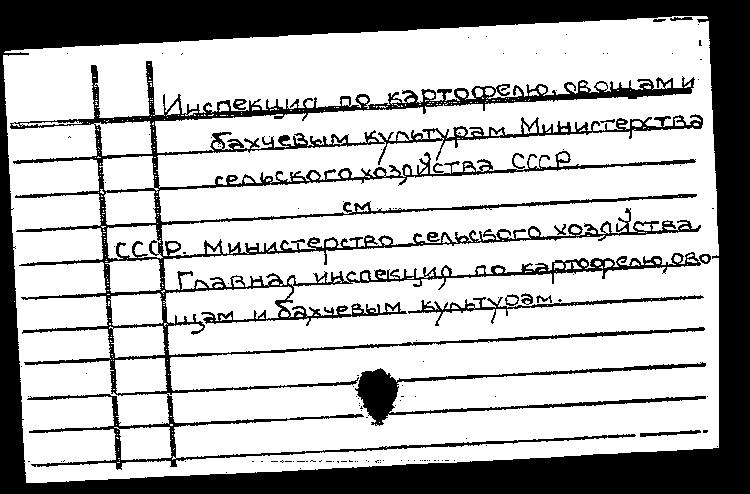 Инспекция по картофелю, овощам и
бахчевым культурам Министерства
сельского хозяйства СССР
см.
СССР. Министерство сельского хозяйства.
Главная инспекция по картофелю, ово-
щам и бахчевым культурам.